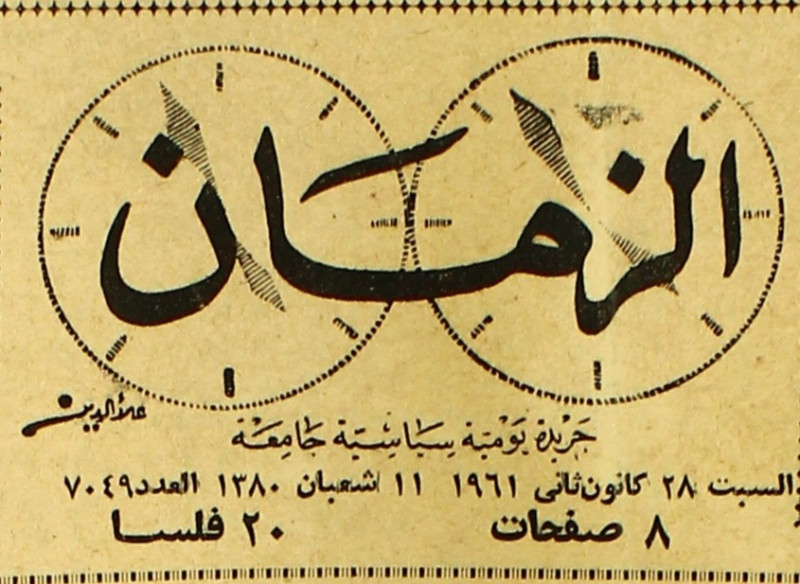 الزمان
علاءالدين
جَريدة يَوميّة سيَاسيّة جَامعَة
السبت ٢٨ كانون ثانى ١٩٦١ ١١ شعبان ١٣٨٠ العدد ٧٠٤٩
٨ صفحات ٢٠ فلسا